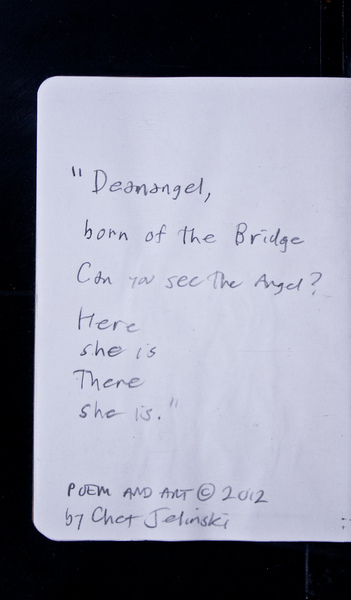 "Deanangel,
born of the Bridge
Can you see the Angel?
Here
she is
There
she is."
POEM AND ART © 2012
by Chet Jelinski